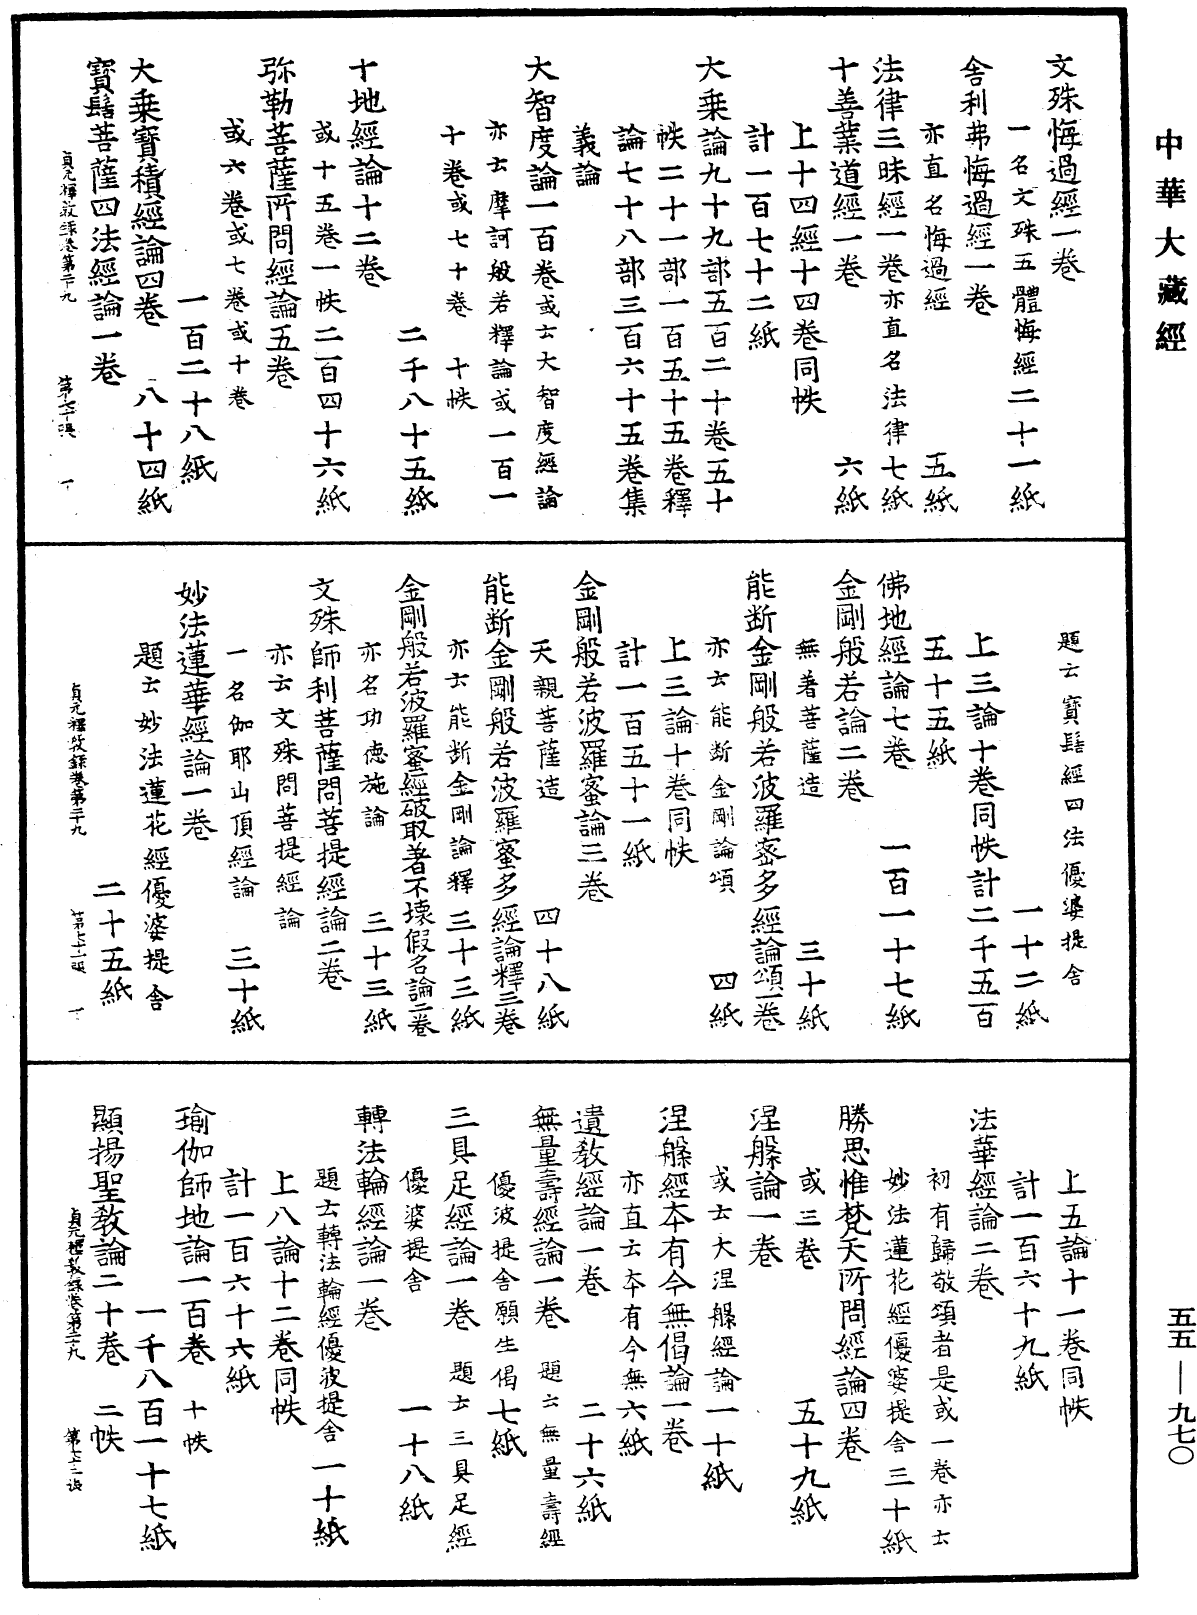 中華大藏經
文殊悔過經一卷
一名文殊五體悔經二十一紙
舎利弗悔過經一卷
亦直名悔過經　五紙
法律三昧經一卷亦直名法律七紙
十善業道經一卷　六紙
上十四經十四卷同帙
計一百七十二紙
大乗論九十九部五百二十卷五十
帙二十一部一百五十五卷釋
論七十八部三百六十五卷集
義論
大智度論一百卷或云大智度經論
亦云摩訶般若釋論或一百一
十卷或七十卷　十帙
二千八十五紙
十地經論十二卷
或十五卷一帙二百四十六紙
弥勒菩薩所問經論五卷
或六卷或七卷或十卷
一百二十八紙
大乗寶積經論四卷　八十四紙
寶髻菩薩四法經論一卷
貞元釋教録卷第二十九　第七十張
題云寶髻經四法優婆提舎
一十二紙
上三論十卷同帙計二千五百
五十五紙
佛地經論七卷　一百一十七紙
金剛般若論二卷
無著菩薩造　三十紙
能断金剛般若波羅蜜多經論頌一卷
亦云能断金剛論頌　四紙
上三論十卷同帙
計一百五十一紙
金剛般若波羅蜜論三卷
天親菩薩造　四十八紙
能断金剛般若波羅蜜多經論釋三卷
亦云能断金剛論釋三十三紙
金剛般若波羅蜜經破取著不壊假名論二卷
亦名功德施論　三十三紙
文殊師利菩薩問菩提經論二卷
亦云文殊問菩提經論
一名伽耶山頂經論　三十紙
妙法蓮華經論一卷
題云妙法蓮花經優婆提舎
二十五紙
貞元釋教録卷第二十九　第七十一張
上五論十一卷同帙
計一百六十九紙
法華經論二卷
初有歸敬頌者是或一卷亦云
妙法蓮花經優婆提舎三十紙
勝思惟梵天所問經論四卷
或三卷　五十九紙
涅槃論一卷
或云大涅槃經論一十紙
涅槃經本有今無偈論一卷
亦直云本有今無六紙
遺教經論一卷　二十六紙
無量壽經論一卷　題云無量壽經
優波提舎願生偈七紙
三具足經論一卷　題云三具足經
優婆提舎　一十八紙
轉法輪經論一卷
題云轉法輪經優波提舎一十紙
上八論十二卷同帙
計一百六十六紙
瑜伽師地論一百卷　十帙
一千八百一十七紙
顯揚聖教論二十卷　二帙
貞元釋教録卷第二十九　第七十二張
五五—九七〇